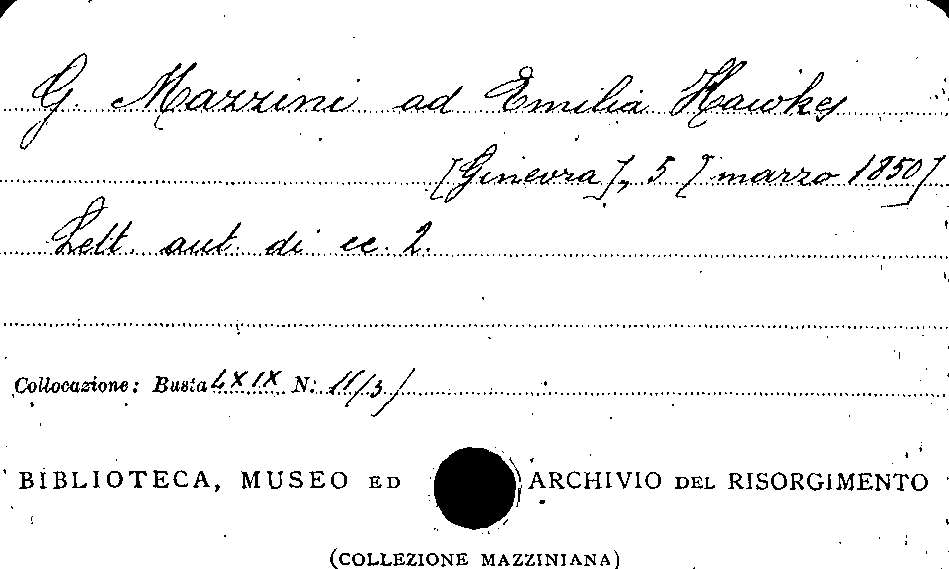 G. Mazzini ad Emilia Hawkes
[Ginevra], 5 [marzo 1850]
Lett. aut. di cc. 2.
Collocazione: Busta LXIX N: 11/3/
BIBLIOTECA, MUSEO ED ARCHIVIO DEL RISORGIMENTO
(COLLEZIONE MAZZINIANA)